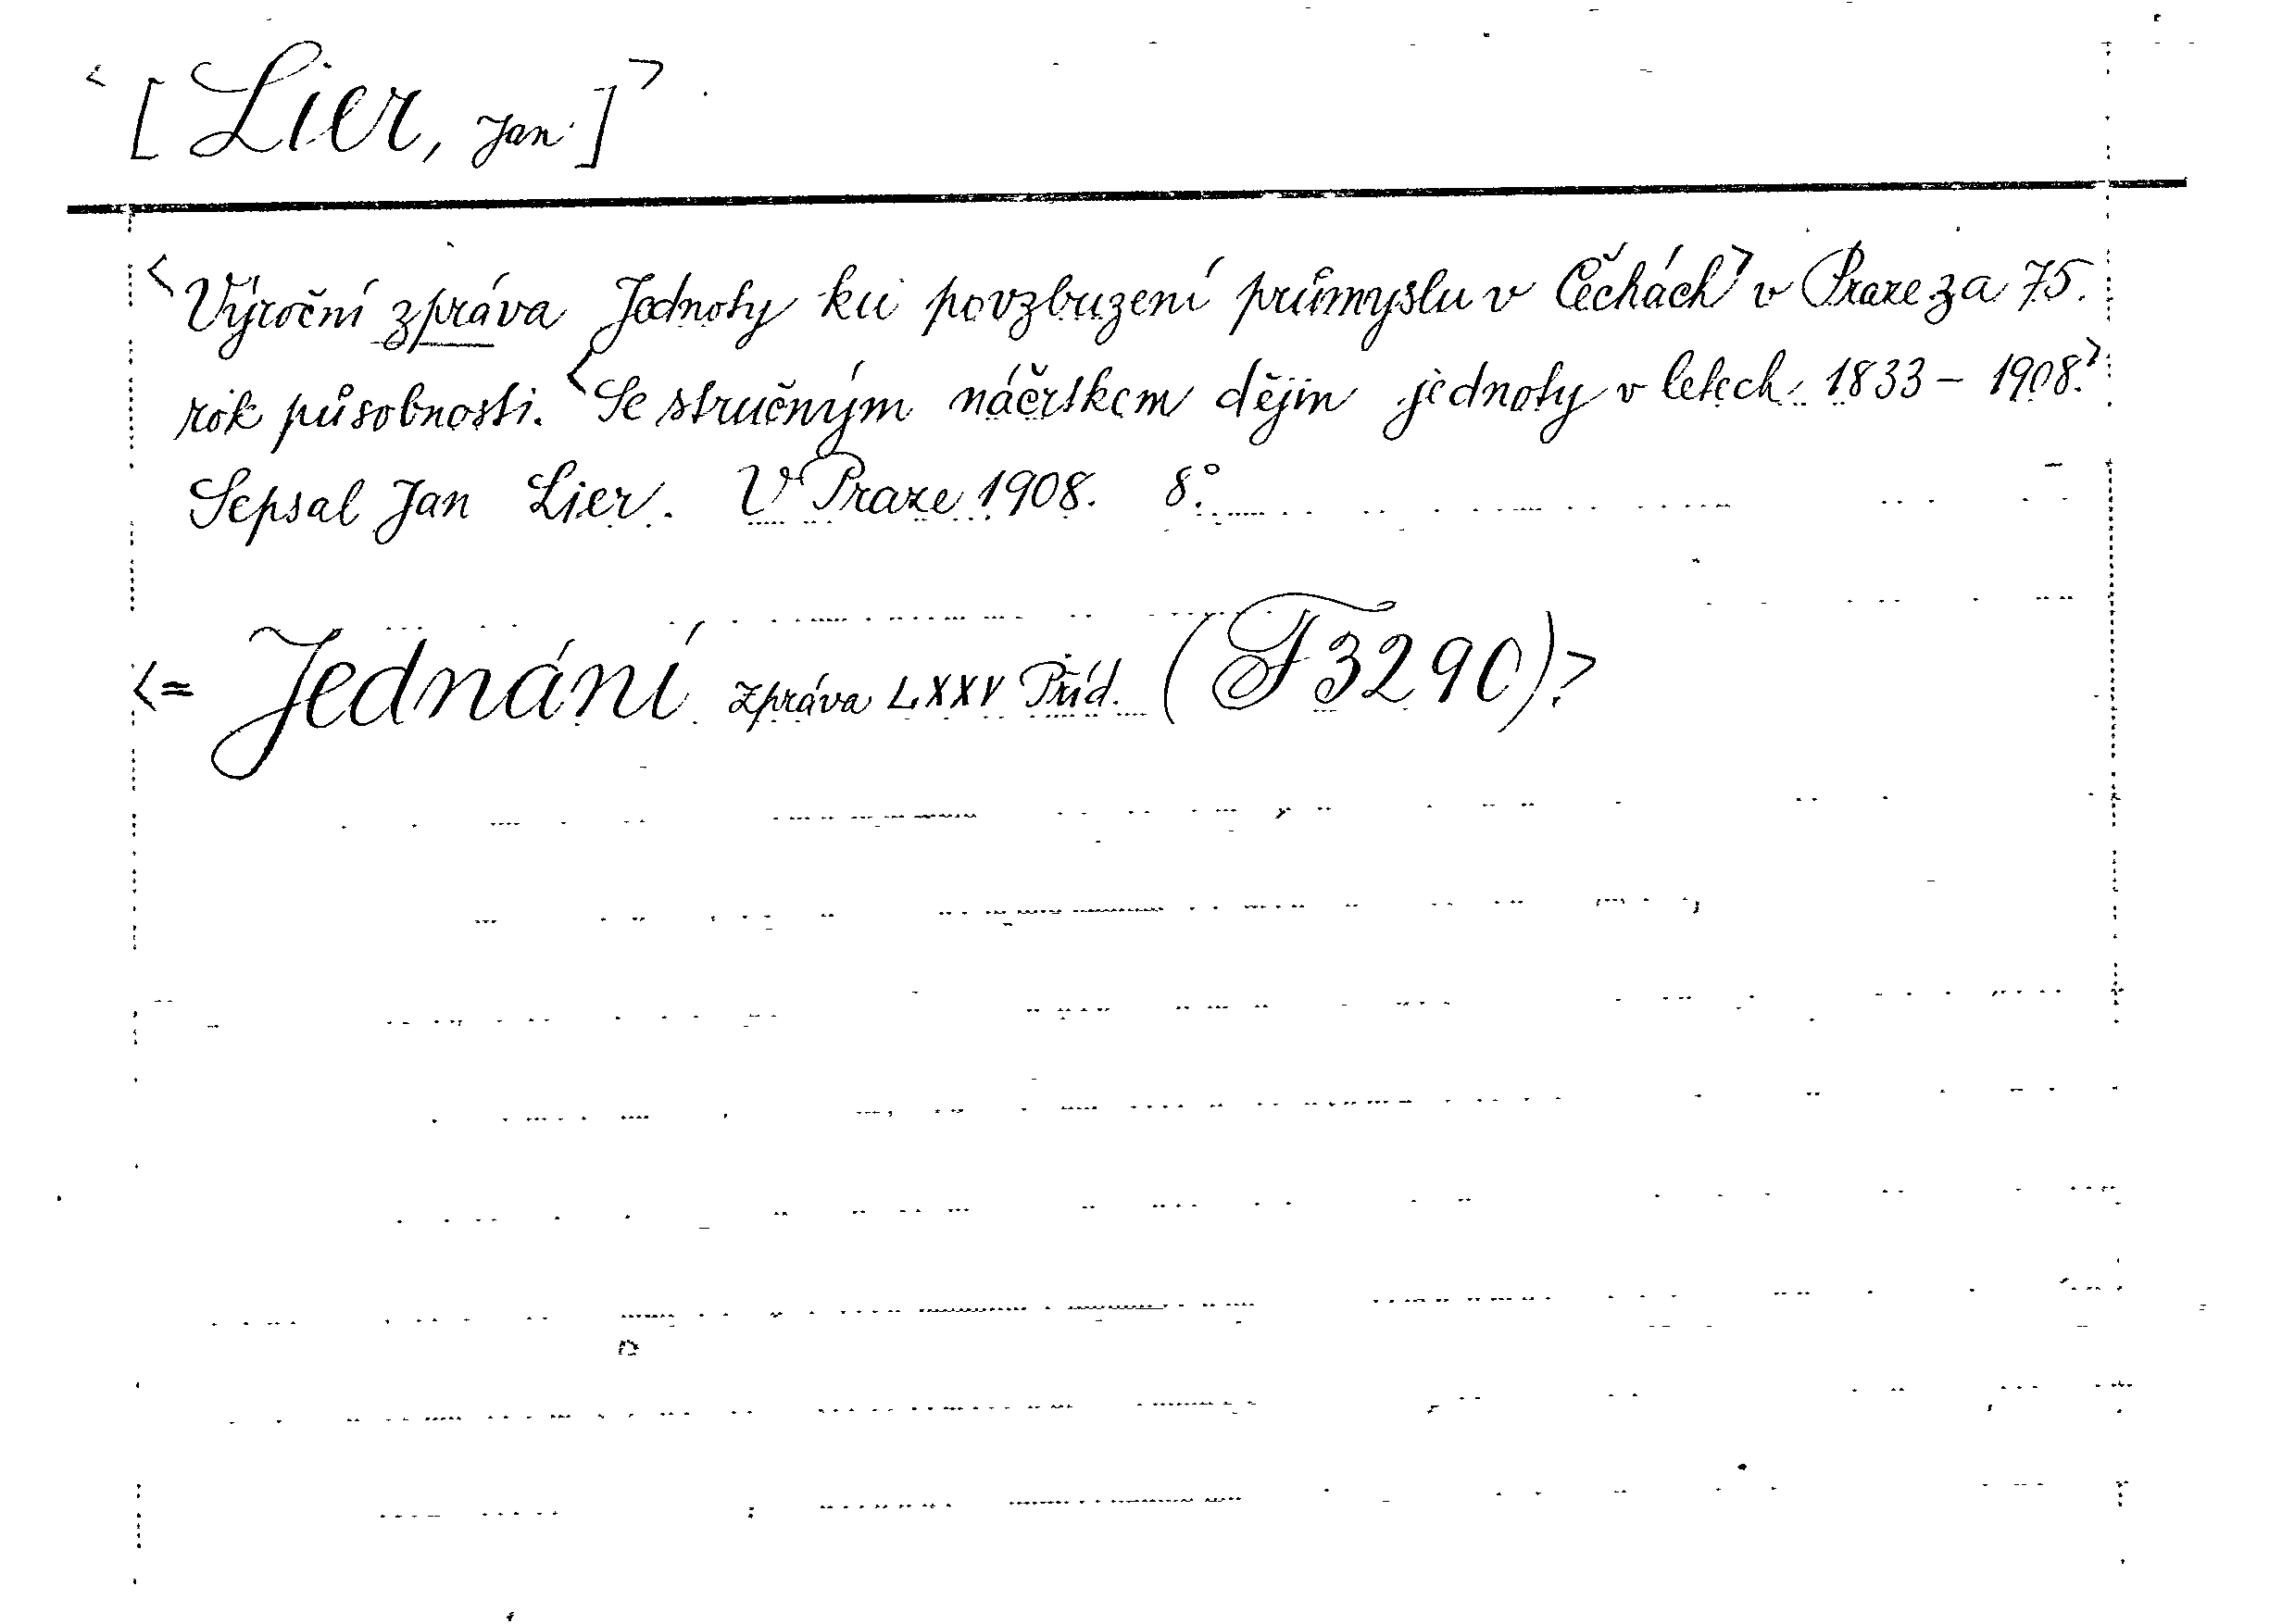 <[Lier, Jan]>
<Výroční zpráva Jednoty ku povzbuzení průmyslu v Čechách> v Praze za 75.
rok působnosti. <Se stručným náčrtkem dějin jednoty v letech 1833 – 1908.>
Sepsal Jan Lier. V Praze 1908. 8°.
<= Jednání zpráva LXXV Příd. (F 3290)>